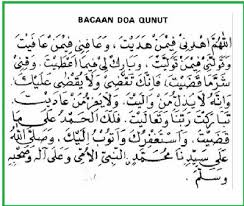 BACAAN DOA QUNUT
اَللّٰهُمَّ اهْدِنِيْ فِيْمَنْ هَدَيْتَ ، وَعَافِنِيْ فِيْمَنْ عَافَيْتَ
وَتَوَلَّنِيْ فِيْمَنْ تَوَلَّيْتَ ، وَبَارِكْ لِيْ فِيْمَا اَعْطَيْتَ ، وَقِنِيْ
شَرَّ مَا قَضَيْتَ ، فَاِنَّكَ تَقْضِيْ وَلَا يُقْضٰى عَلَيْكَ .
وَاِنَّهُ لَا يَذِلُّ مَنْ وَالَيْتَ . وَلَا يَعِزُّ مَنْ عَادَيْتَ .
تَبَارَكْتَ رَبَّنَا وَتَعَالَيْتَ . فَلَكَ الْحَمْدُ عَلٰى مَا
قَضَيْتَ ، وَاَسْتَغْفِرُكَ وَاَتُوْبُ اِلَيْكَ ، وَصَلَّى اللّٰهُ
عَلٰى سَيِّدِنَا مُحَمَّدٍ النَّبِيِّ الْاُمِّيِّ وَعَلٰى اٰلِهِ وَصَحْبِهِ
وَسَلَّمَ